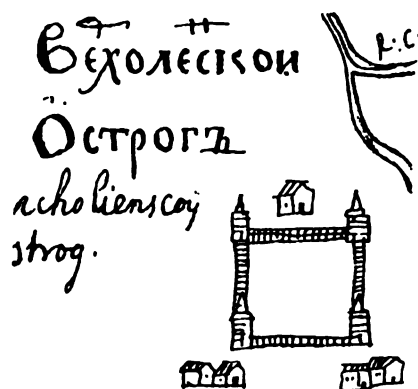 Вехолескои
Острогъ
р: С
acholienscoÿ
strog.